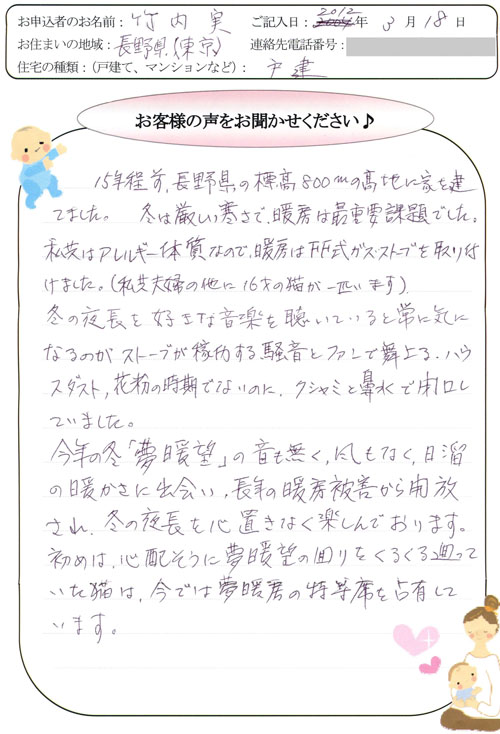 お申込者のお名前：竹内 実 ご記入日：2012年 3月18日
お住まいの地域：長野県(東京) 連絡先電話番号：
住宅の種類：(戸建て、マンションなど)：戸建
お客様の声をお聞かせください♪
15年程前、長野県の標高800mの高地に家を建
てました。 冬は厳しい寒さで、暖房は最重要課題でした。
私共はアレルギー体質なので、暖房はFF式ガスストーブを取り付
けました。(私共夫婦の他に16才の猫が一匹います)
冬の夜長を好きな音楽を聴いていると常に気に
なるのがストーブが稼働する騒音とファンで舞上る、ハウ
スダスト、花粉の時期でないのに、クシャミと鼻水で閉口し
ていました。
今年の冬「夢暖望」の音も無く、風もなく、日溜
の暖かさに出会い、長年の暖房被害から開放
され、冬の夜長を心置きなく楽しんでおります。
初めは、心配そうに夢暖望の回りをくるくる廻って
いた猫は、今では夢暖房の特等席を占有して
います。